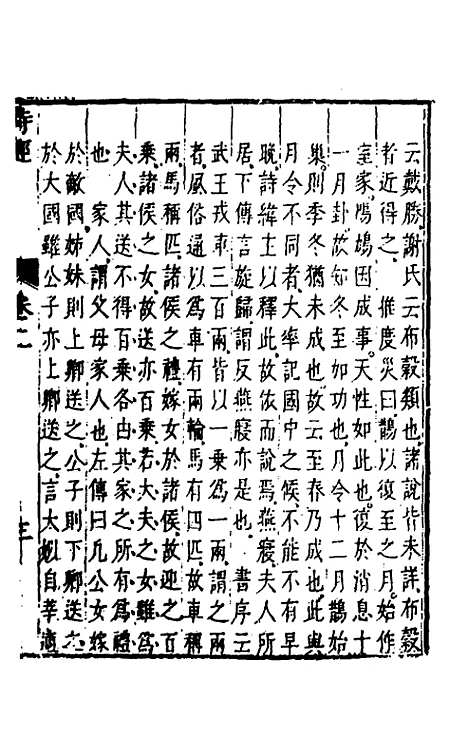 云戴勝謝氏云布穀類也諸說皆未詳布穀
者近得之　推度災曰鵲以復至之月始作
室家鳲鳩因成事天性如此也復於消息十
一月卦故知冬至如功也月令十二月鵲始
巢則季冬猶未成也故云至春乃成也此與
月令不同者大率記國中之候不能不有早
晚詩緯主以釋此故依而說焉燕寢夫人所
居下傳言旋歸謂反燕寢亦是也　書序云
武王戎車三百兩皆以一乘爲一兩謂之兩
者風俗通以爲車有兩輪馬有四匹故車稱
兩馬稱匹諸侯之禮嫁女於諸侯故迎之百
乘諸侯之女故送亦百乘若大夫之女雖爲
夫人其送不得百乘各由其家之所有爲禮
也　家人謂父母家人也左傳曰凡公女嫁
於敵國姊妹則上卿送之公子則下卿送之
於大國雖公子亦上卿送之言大姒自莘適
詩經
卷二
三